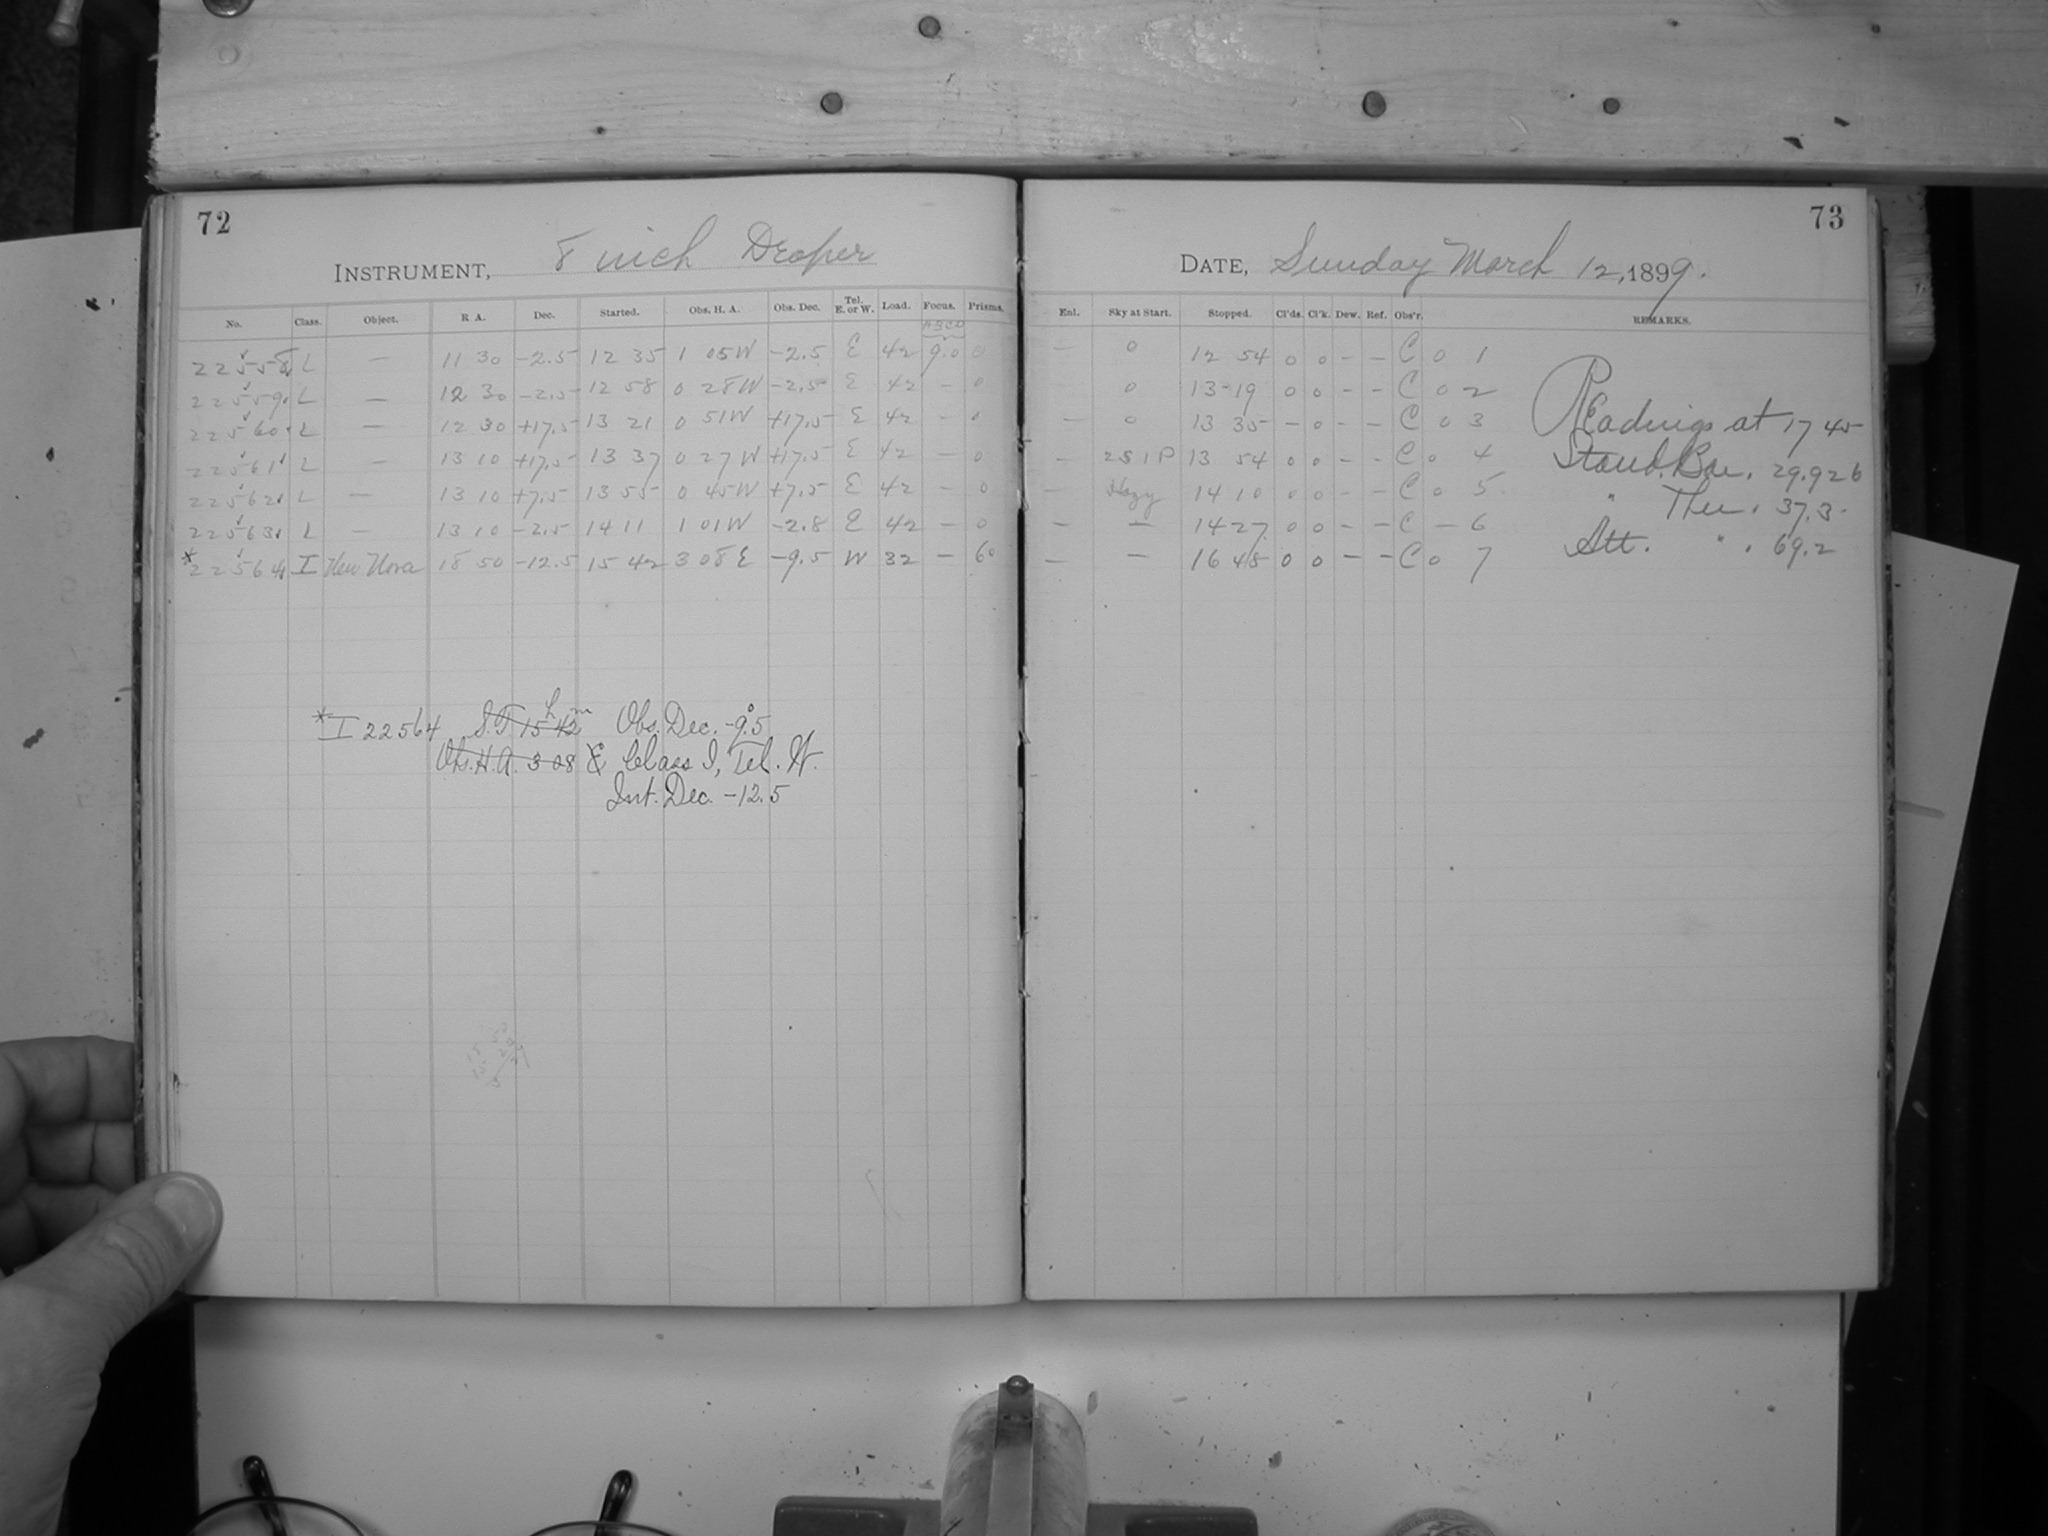 72
INSTRUMENT, 8 inch Draper
No. Class. Object. R A. Dec. Started. Obs. H. A. Obs. Dec. Tel. E. or W. Load. Focus. Prisms.
ABCD
22558 L — 11 30 -2.5 12 35 1 05 W -2.5 E 42 9.0 0
22559 L — 12 30 -2.5 12 58 0 28 W -2.5 E 42 - 0
22560 L — 12 30 +17.5 13 21 0 51 W +17.5 E 42 - 0
22561 L — 13 10 +17.5 13 37 0 27 W +17.5 E 42 - 0
22562 L — 13 10 +7.5 13 55 0 45 W +7.5 E 42 - 0
22563 L — 13 10 -2.5 14 11 1 01 W -2.8 E 42 - 0
* 22564 I New Nova 18 50 -12.5 15 42 3 08 E -9.5 W 32 - 60
* I 22564 S.T. 15h 42m Obs. Dec. -9°.5
Obs. H.A. 3 08 E Class I, Tel. W.
Int. Dec. -12.5
73
DATE, Sunday March 12, 1899.
Enl. Sky at Start. Stopped. Cl'ds. Cl'k. Dew. Ref. Obs'r. REMARKS.
— 0 12 54 0 0 - - C 0 1
0 13-19 0 0 - - C 0 2
— 0 13 35 - 0 - - C 0 3
— 2S 1P 13 54 0 0 - - C 0 4
— Hazy 14 10 0 0 - - C 0 5
— — 14 27 0 0 - - C - 6
— — 16 48 0 0 - - C 0 7
Readings at 17 45
Stand. Bar. 29.926
" Ther. 37.3
Att. " . 69.2